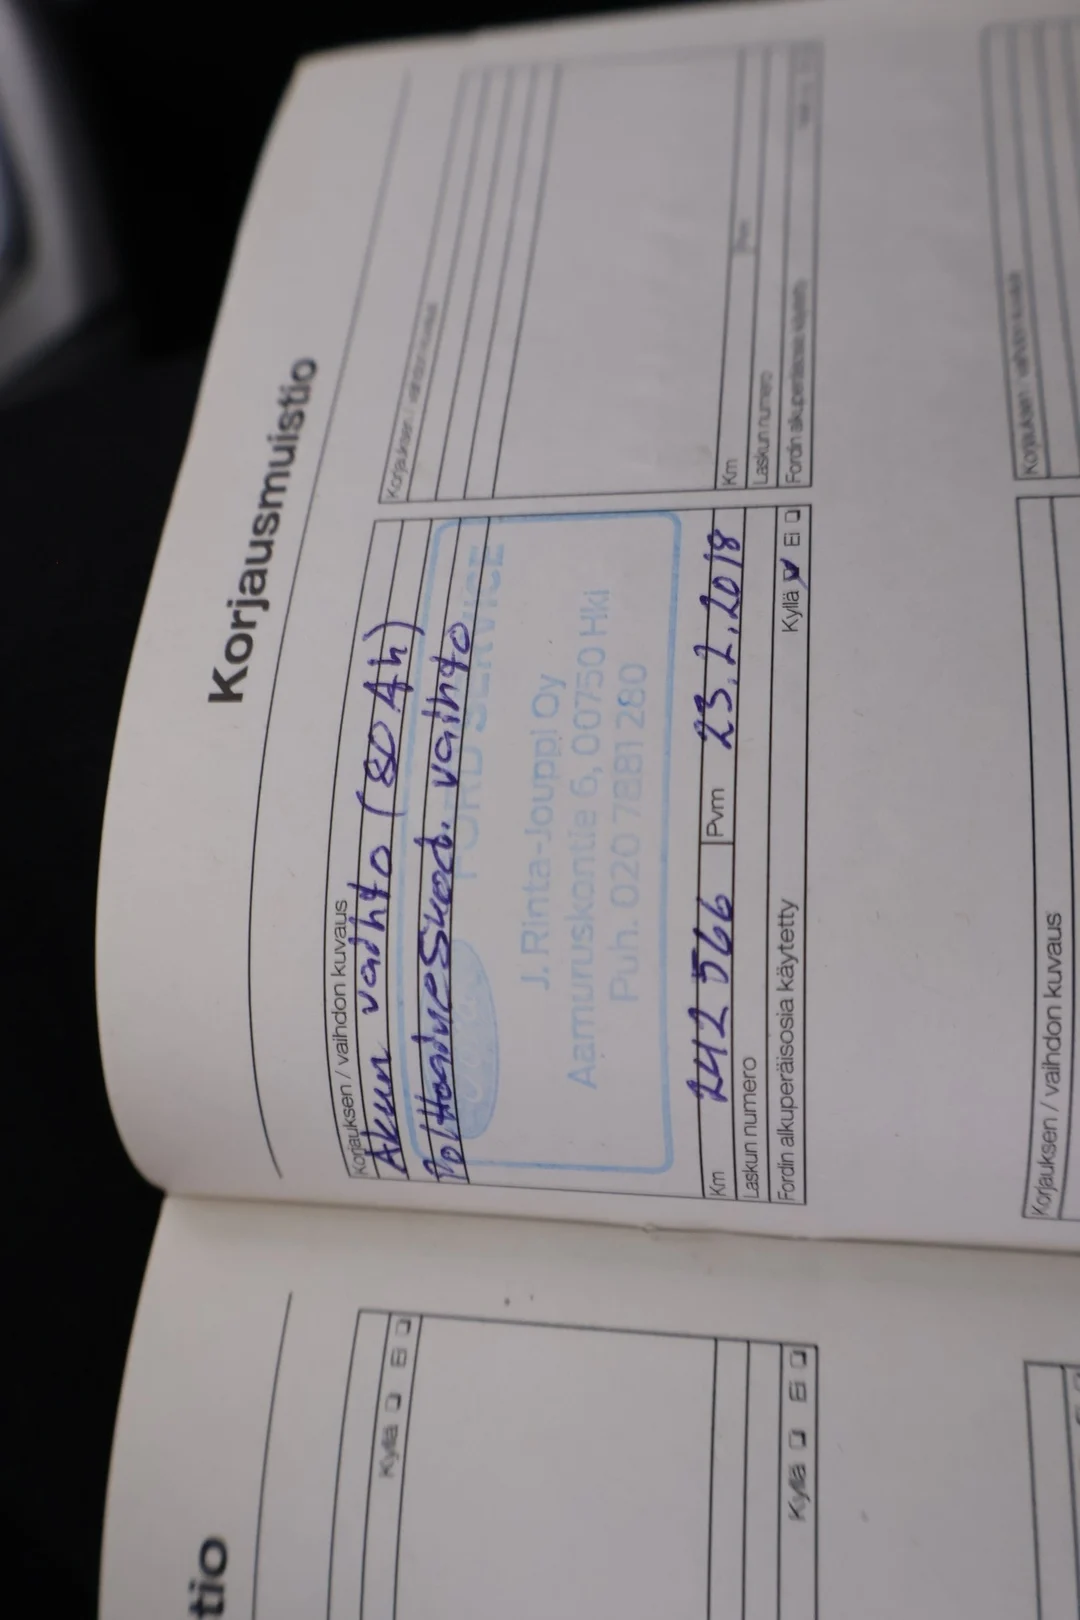 Korjausmuistio
Korjauksen / vaihdon kuvaus
Akun vaihto (80 Ah)
Polttoainesuod. vaihto
FORD SERVICE
J. Rinta-Jouppi Oy
Aamuruskontie 6, 00750 Hki
Puh. 020 7881 280
Km 242 566 Pvm 23.2.2018
Laskun numero
Fordin alkuperäisosia käytetty Kyllä Ei
Korjauksen / vaihdon kuvaus
Km Pvm
Laskun numero
Fordin alkuperäisosia käytetty
Korjauksen / vaihdon kuvaus
Korjauksen / vaihdon kuvaus
tio
Kyllä Ei
Kyllä Ei